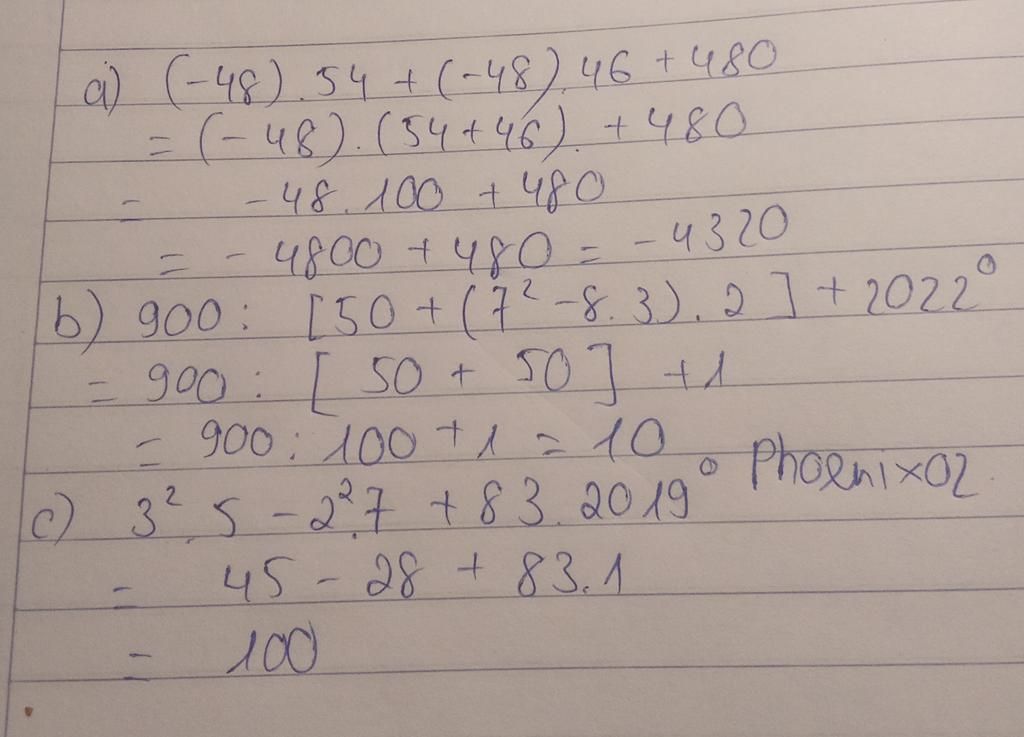 a) (-48).54 + (-48).46 + 480
= (-48).(54+46).+480
= -48.100 + 480
= -4800 + 480 = -4320
b) 900: [50 + (7² -8.3).2] + 2022⁰
= 900: [50 + 50] +1
= 900:100 +1 = 10
c) 3².5 - 2².7 + 83.2019⁰ Phoenix02
= 45 - 28 + 83.1
= 100